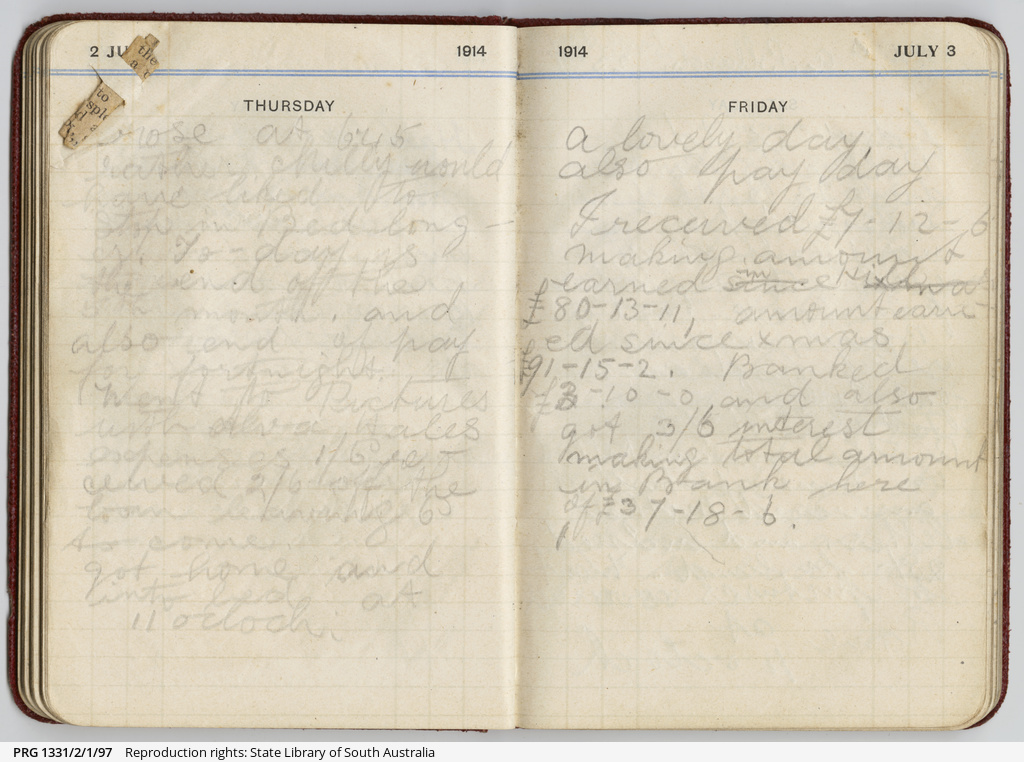 2 JU
1914
the
to
spl
THURSDAY
arose at 645
rather chilly would
have liked to
stop in Bed long-
er. To-day is
the end of the
month, and
also end of pay
for fortnight.
Went to Pictures
with Hales
expenses 1/6 rec
eived 2/6 of the
loan leaving 6
to come.
got home and
into bed at
11 oclock.
1914
JULY 3
FRIDAY
a lovely day
also pay day
I received £7-12-6
making amount
earned since Xmas
£80-13-11, amount earn-
ed since xmas
£91-15-2. Banked
£3-10-0 and also
got 3/6 interest
making total amount
in Bank here
of £37-18-6.
PRG 1331/2/1/97 Reproduction rights: State Library of South Australia